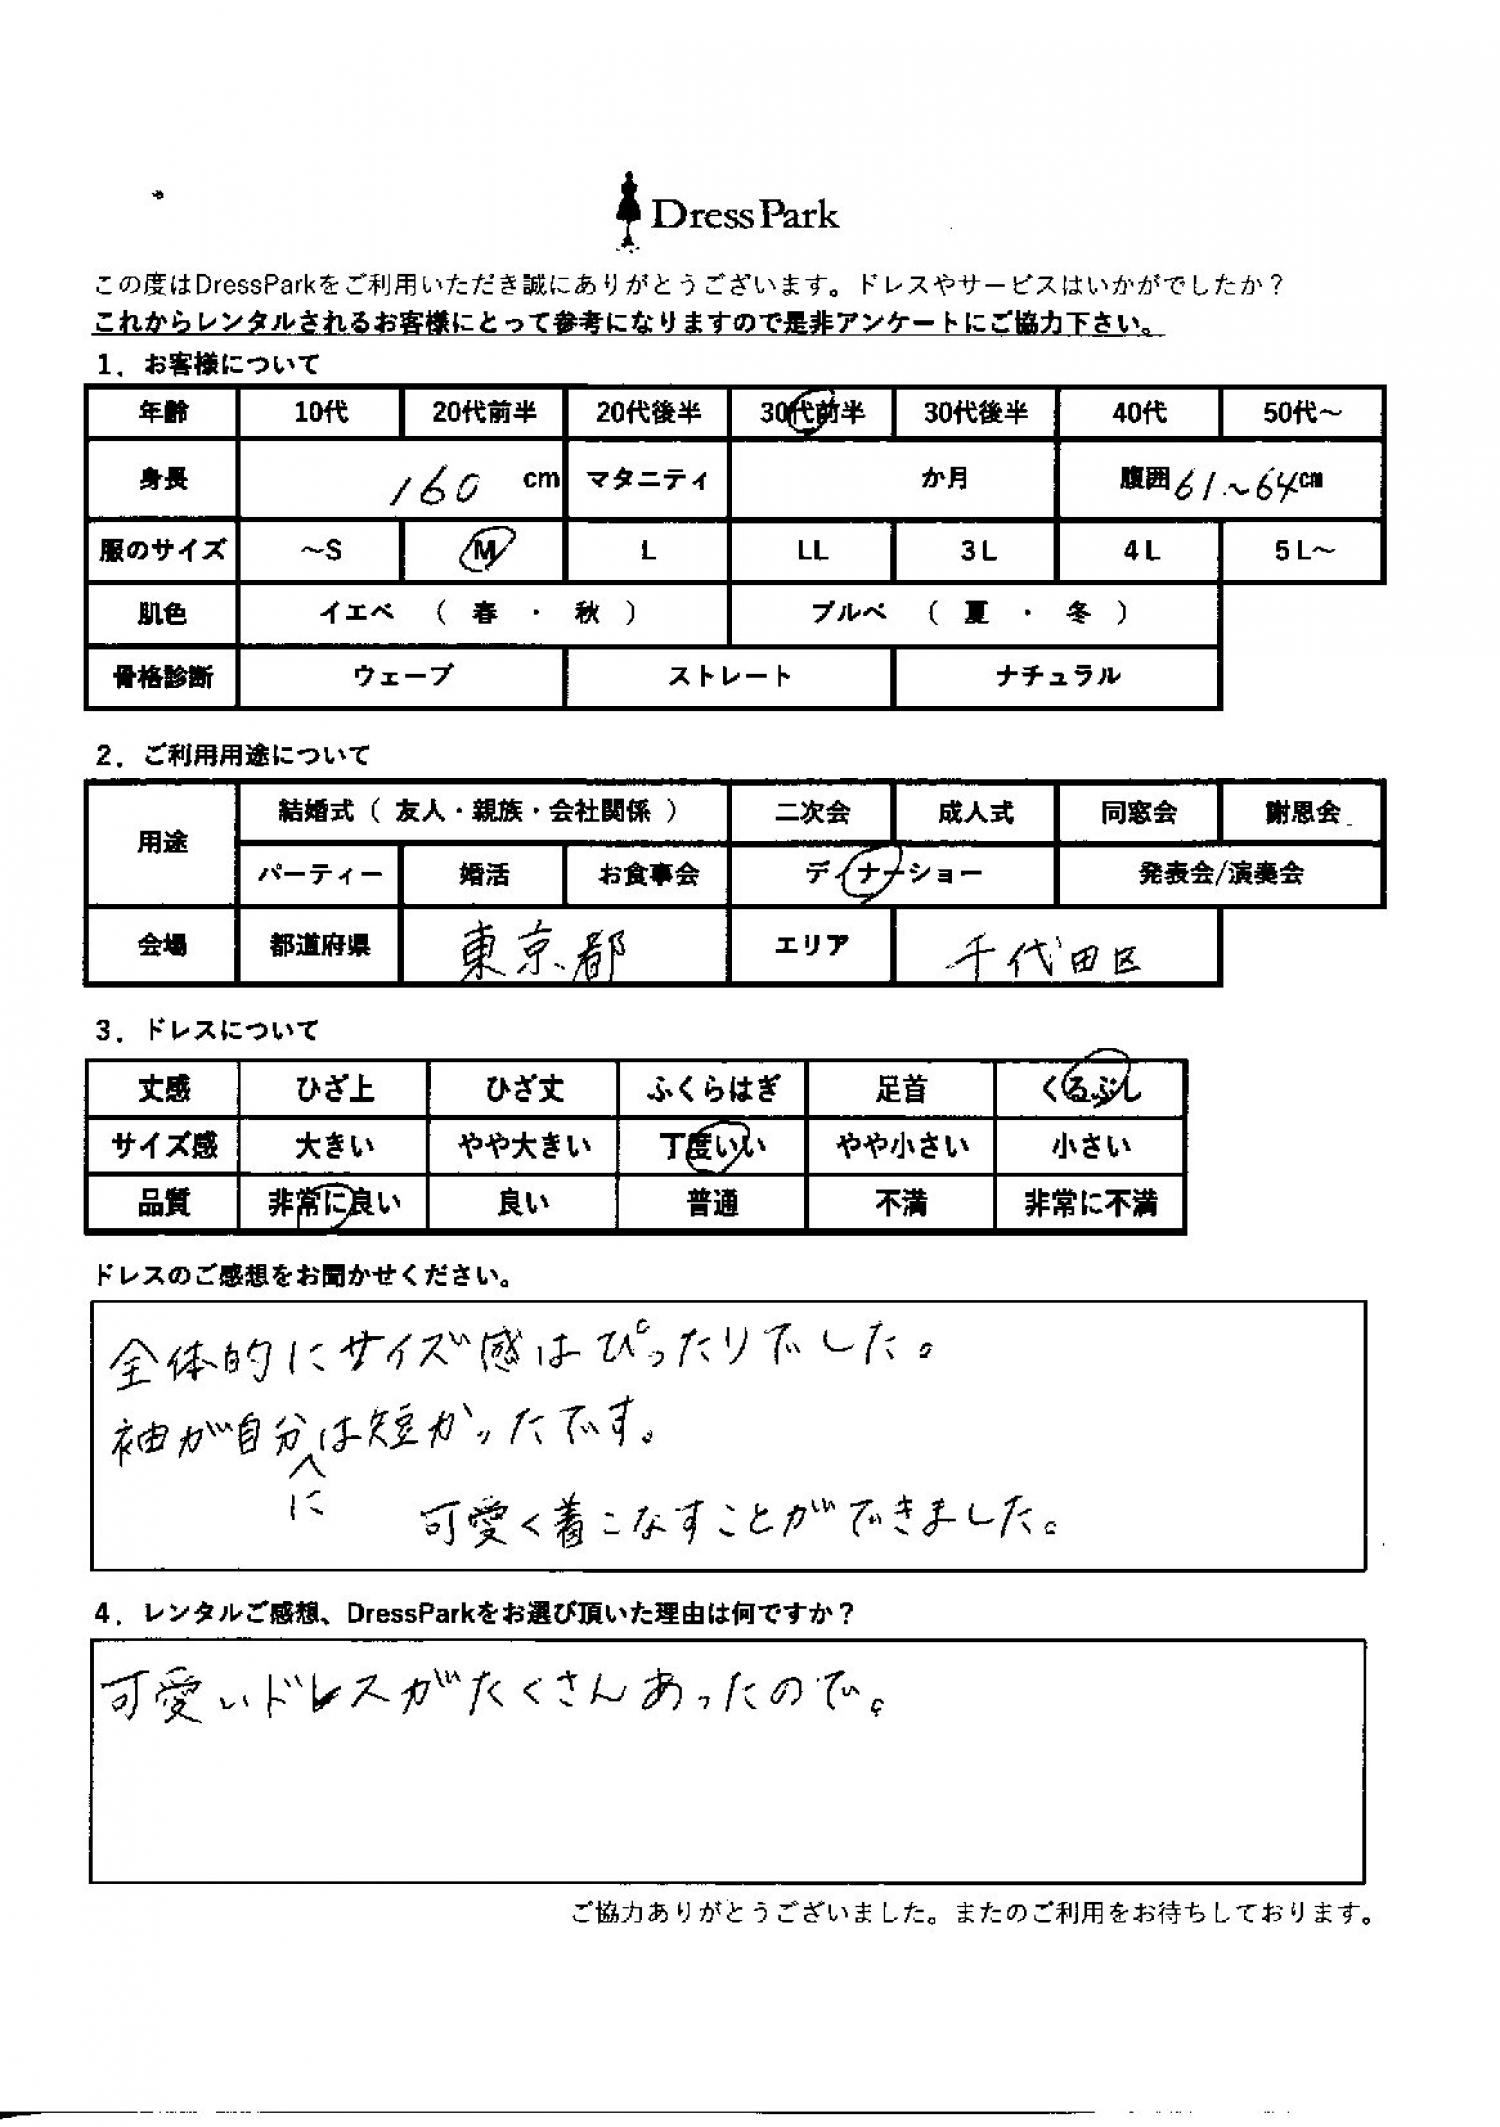 DressPark
この度はDressParkをご利用いただき誠にありがとうございます。ドレスやサービスはいかがでしたか？
これからレンタルされるお客様にとって参考になりますので是非アンケートにご協力下さい。
1．お客様について
年齢 10代 20代前半 20代後半 30代前半 30代後半 40代 50代～
身長 160 cm マタニティ か月 腹囲 61～64cm
服のサイズ ～S M L LL 3L 4L 5L～
肌色 イエベ （ 春 ・ 秋 ） ブルべ （ 夏 ・ 冬 ）
骨格診断 ウェーブ ストレート ナチュラル
2．ご利用用途について
用途 結婚式（ 友人・親族・会社関係 ） 二次会 成人式 同窓会 謝恩会
パーティー 婚活 お食事会 ディナーショー 発表会/演奏会
会場 都道府県 東京都 エリア 千代田区
3．ドレスについて
丈感 ひざ上 ひざ丈 ふくらはぎ 足首 くるぶし
サイズ感 大きい やや大きい 丁度いい やや小さい 小さい
品質 非常に良い 良い 普通 不満 非常に不満
ドレスのご感想をお聞かせください。
全体的にサイズ感はぴったりでした。
袖が自分には短かったです。
可愛く着こなすことができました。
4．レンタルご感想、DressParkをお選び頂いた理由は何ですか？
可愛いドレスがたくさんあったので。
ご協力ありがとうございました。またのご利用をお待ちしております。